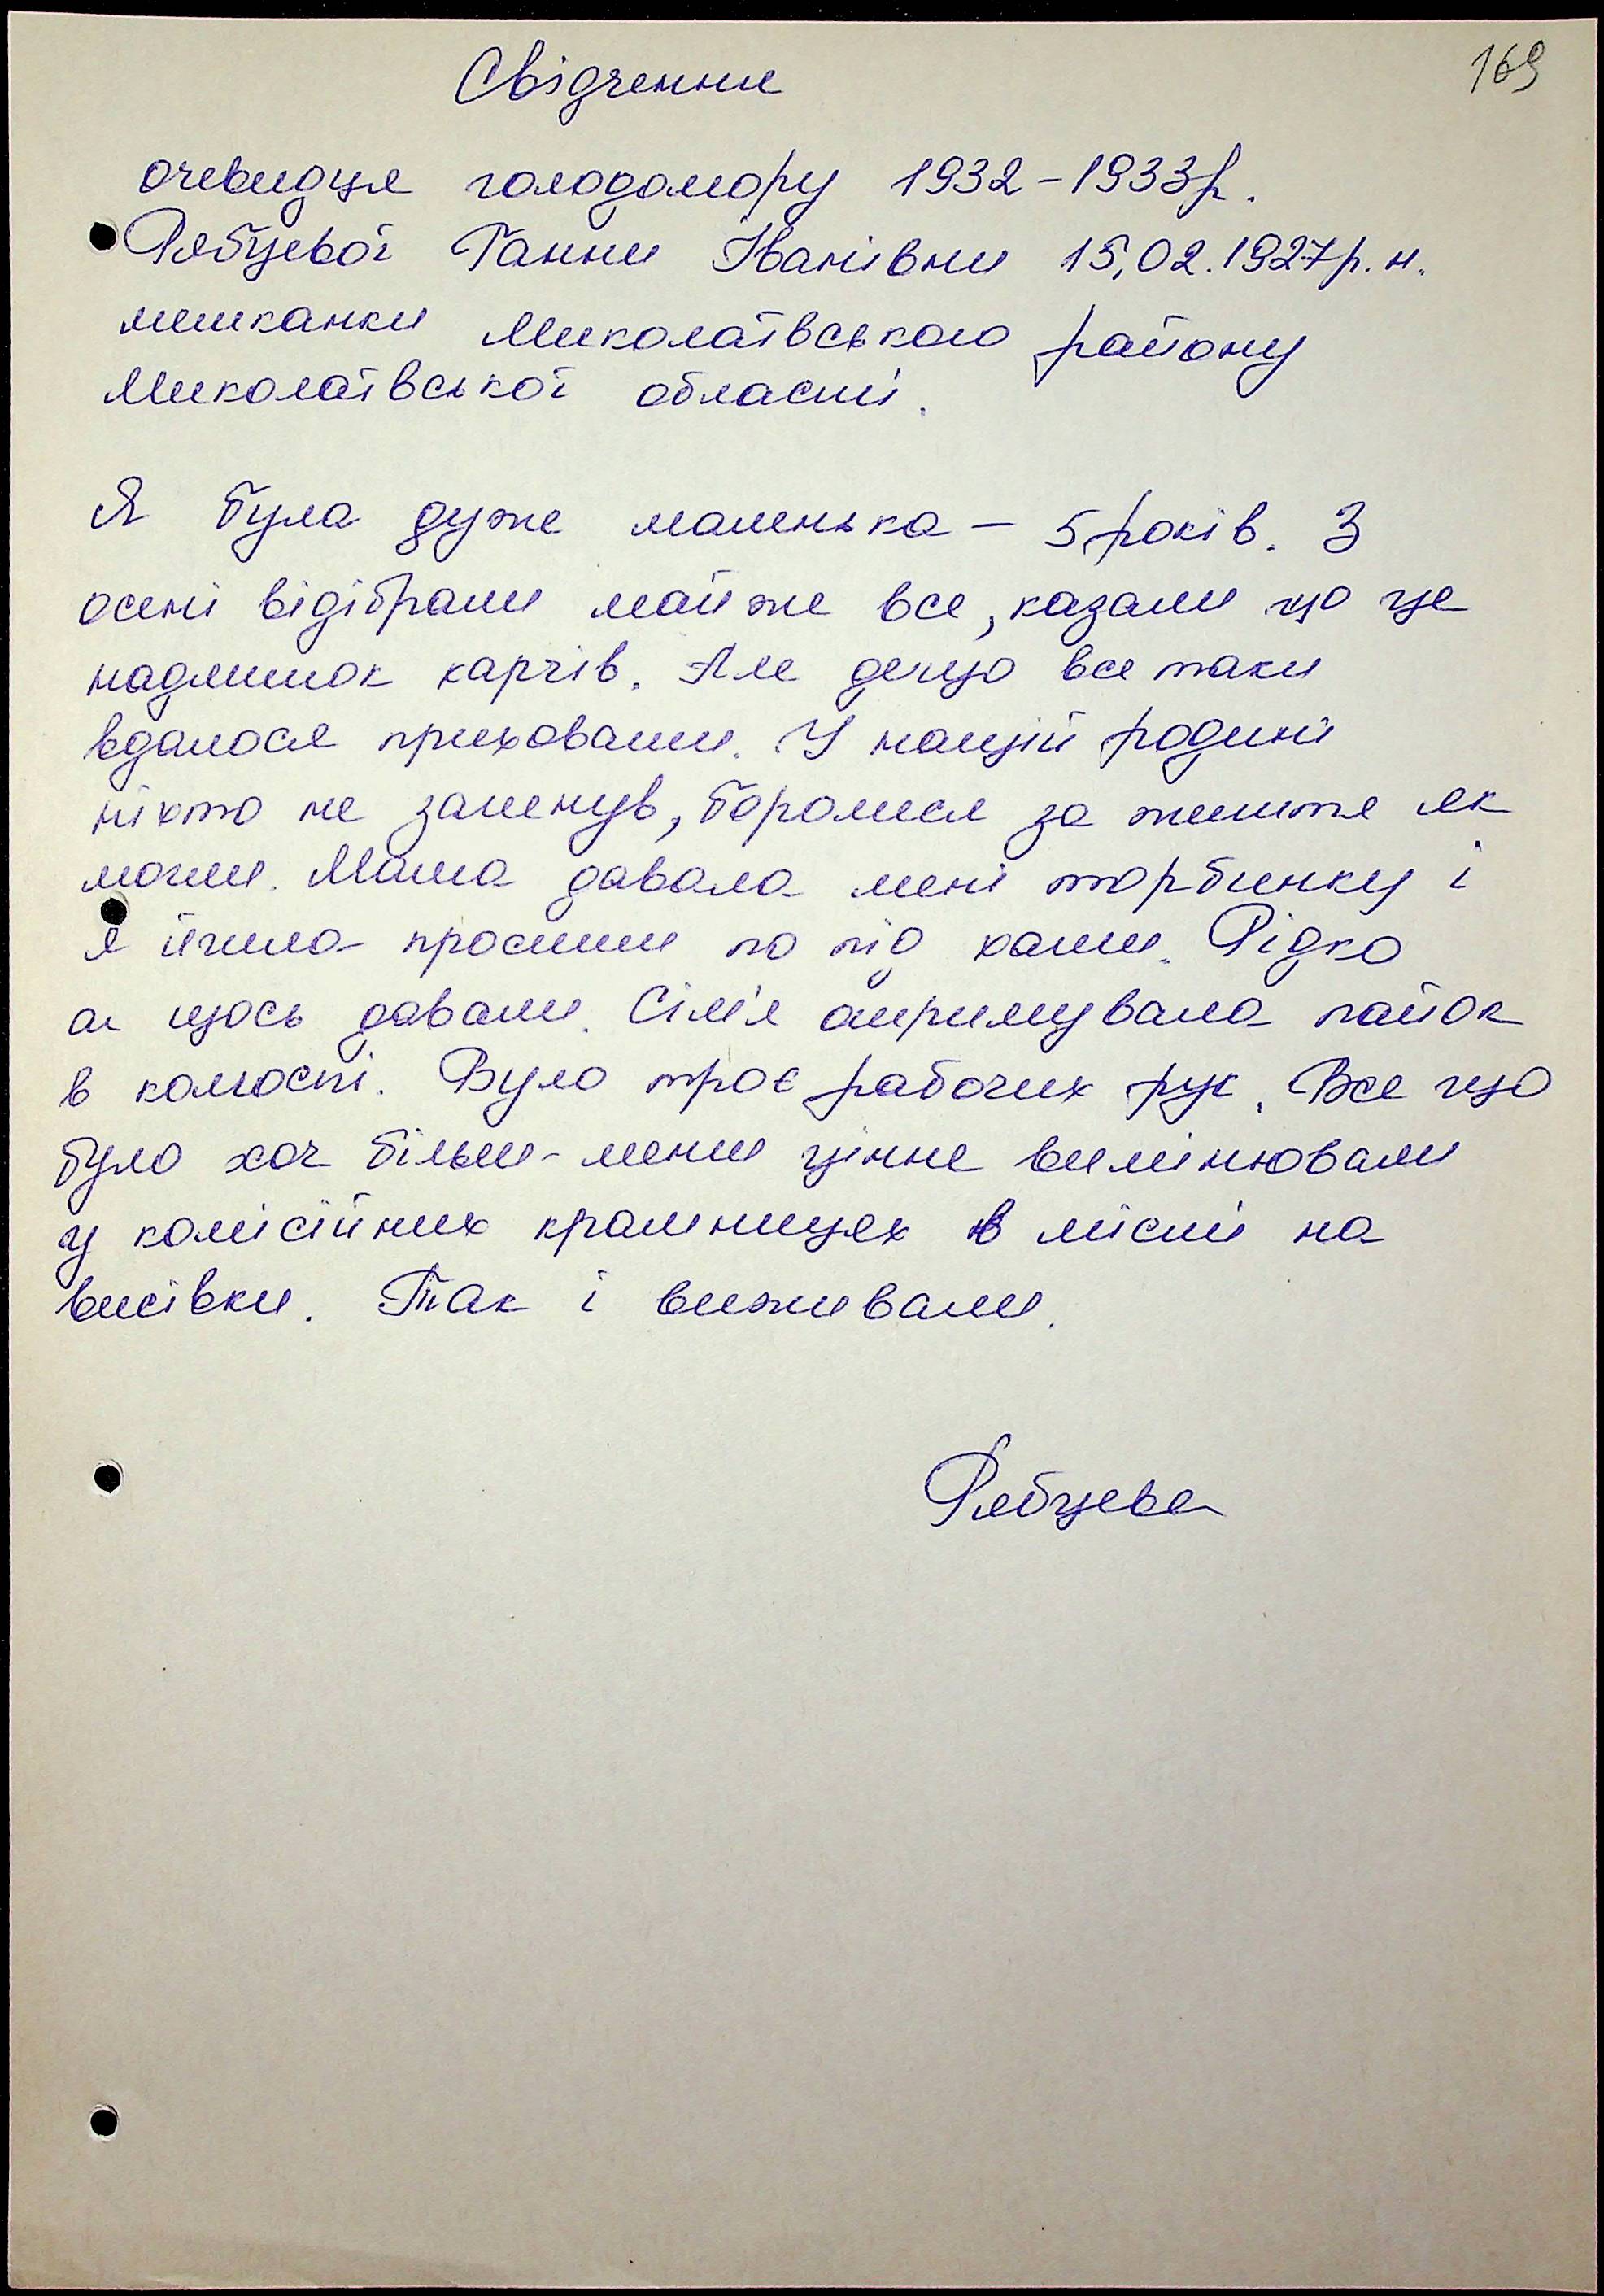 Свідчення
169
очевидця голодомору 1932-1933р.
Рябцевої Ганни Іванівни 15,02.1927р.н.
мешканки Миколаївського району
Миколаївської області.
Я була дуже маленька - 5 років. З
осені відібрали майже все, казали що це
надлишок харчів. Але дещо все таки
вдалося приховати. У нашій родині
ніхто не загинув, боролися за життя як
могли. Мама давала мені торбинку і
я йшла просити по під хати. Рідко
а щось давали. Сім'я отримувала пайок
в колгоспі. Було троє рабочих рук. Все що
було хоч більш-менш цінне вимінювали
у комісійних крамницях в місті на
висівки. Так і виживали.
Рябцева